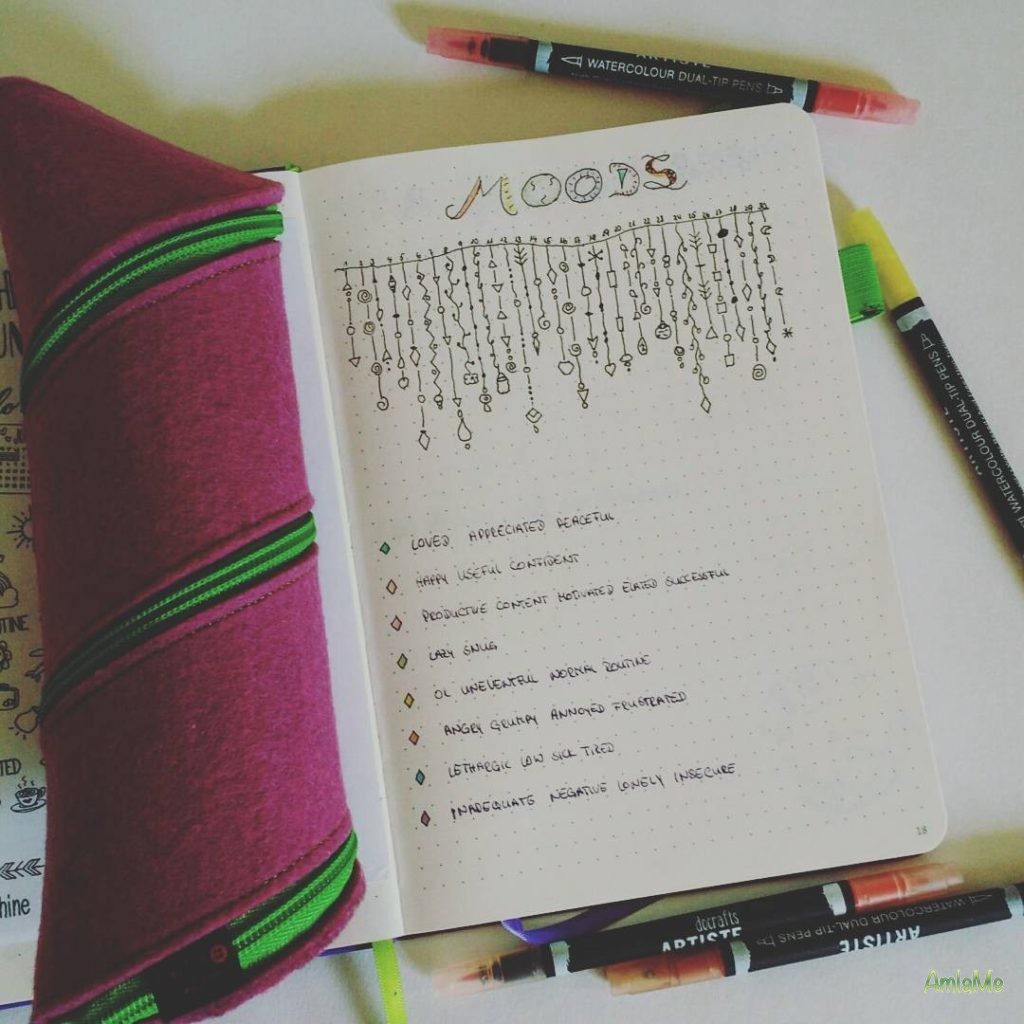 ARTISTE
WATERCOLOUR DUAL-TIP PENS
MOODS
1 2 3 4 5 6 7 8 9 10 11 12 13 14 15 16 17 18 19 20 21 22 23 24 25 26 27 28 29 30
WATERCOLOUR DUAL-TIP PENS
LOVED APPRECIATED PEACEFUL
HAPPY USEFUL CONFIDENT
PRODUCTIVE CONTENT MOTIVATED ELATED SUCCESSFUL
LAZY SNUG
OK UNEVENTFUL NORMAL ROUTINE
ANGRY GRUMPY ANNOYED FRUSTRATED
LETHARGIC LOW SICK TIRED
INADEQUATE NEGATIVE LONELY INSECURE
18
UTINE
TED
hine
docrafts
ARTISTE
WATERCOLOUR DUAL-TIP PENS
ARTISTE
AmieMe